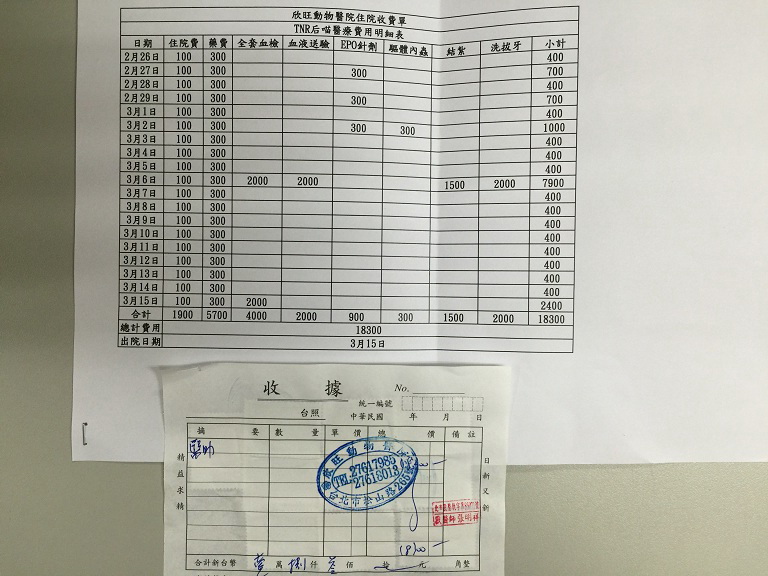 欣旺動物醫院住院收費單
TNR后喵醫療費用明細表
日期 住院費 藥費 全套血檢 血液送驗 EPO針劑 驅體內蟲 結紮 洗拔牙 小計
2月26日 100 300 400
2月27日 100 300 300 700
2月28日 100 300 400
2月29日 100 300 300 700
3月1日 100 300 400
3月2日 100 300 300 300 1000
3月3日 100 300 400
3月4日 100 300 400
3月5日 100 300 400
3月6日 100 300 2000 2000 1500 2000 7900
3月7日 100 300 400
3月8日 100 300 400
3月9日 100 300 400
3月10日 100 300 400
3月11日 100 300 400
3月12日 100 300 400
3月13日 100 300 400
3月14日 100 300 400
3月15日 100 300 2000 2400
合計 1900 5700 4000 2000 900 300 1500 2000 18300
總計費用 18300
出院日期 3月15日
收 據 No.
統一編號
台照 中華民國 年 月 日
摘 要 數 量 單 價 總 價 備註
精益求精
日新又新
欣旺動物
TEL:27617985
27618013
台北市松山路266號
獸醫師 張明祥
合計新台幣 萬 仟 佰 拾 元 角整